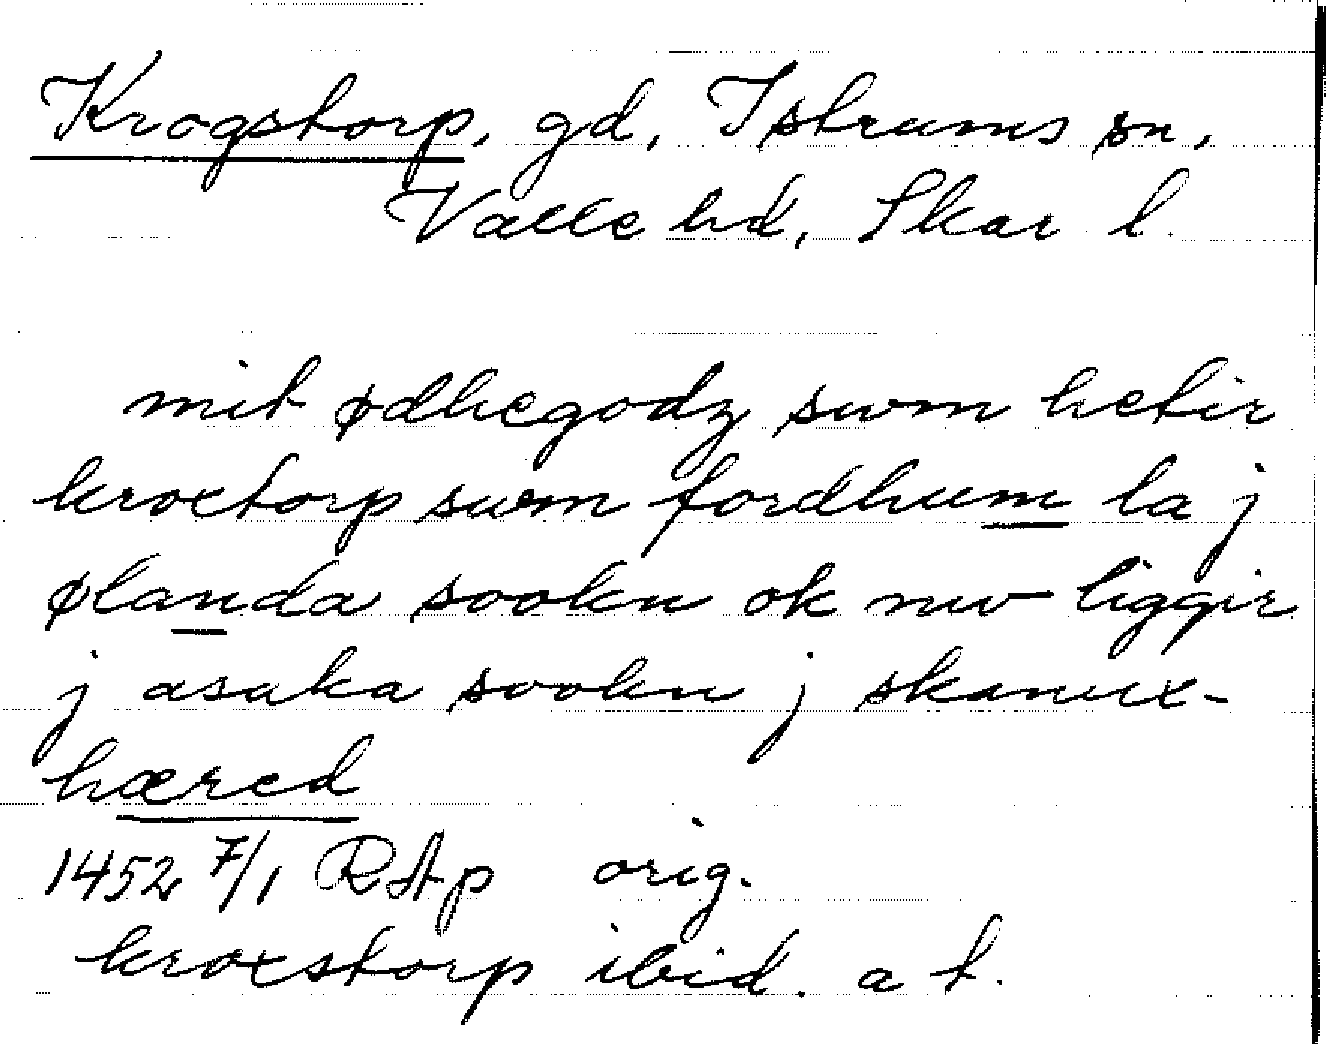 Krogstorp, gd, Istrums sn,
Valle hd, Skar l.
mit ødhegodz swm hetir
kroxtorp swm fordhum la j
ølanda sookn ok nw liggir
j asaka sookn j skanux-
hæred
1452 7/1 RAp orig.
kroxstorp ibid. a t.